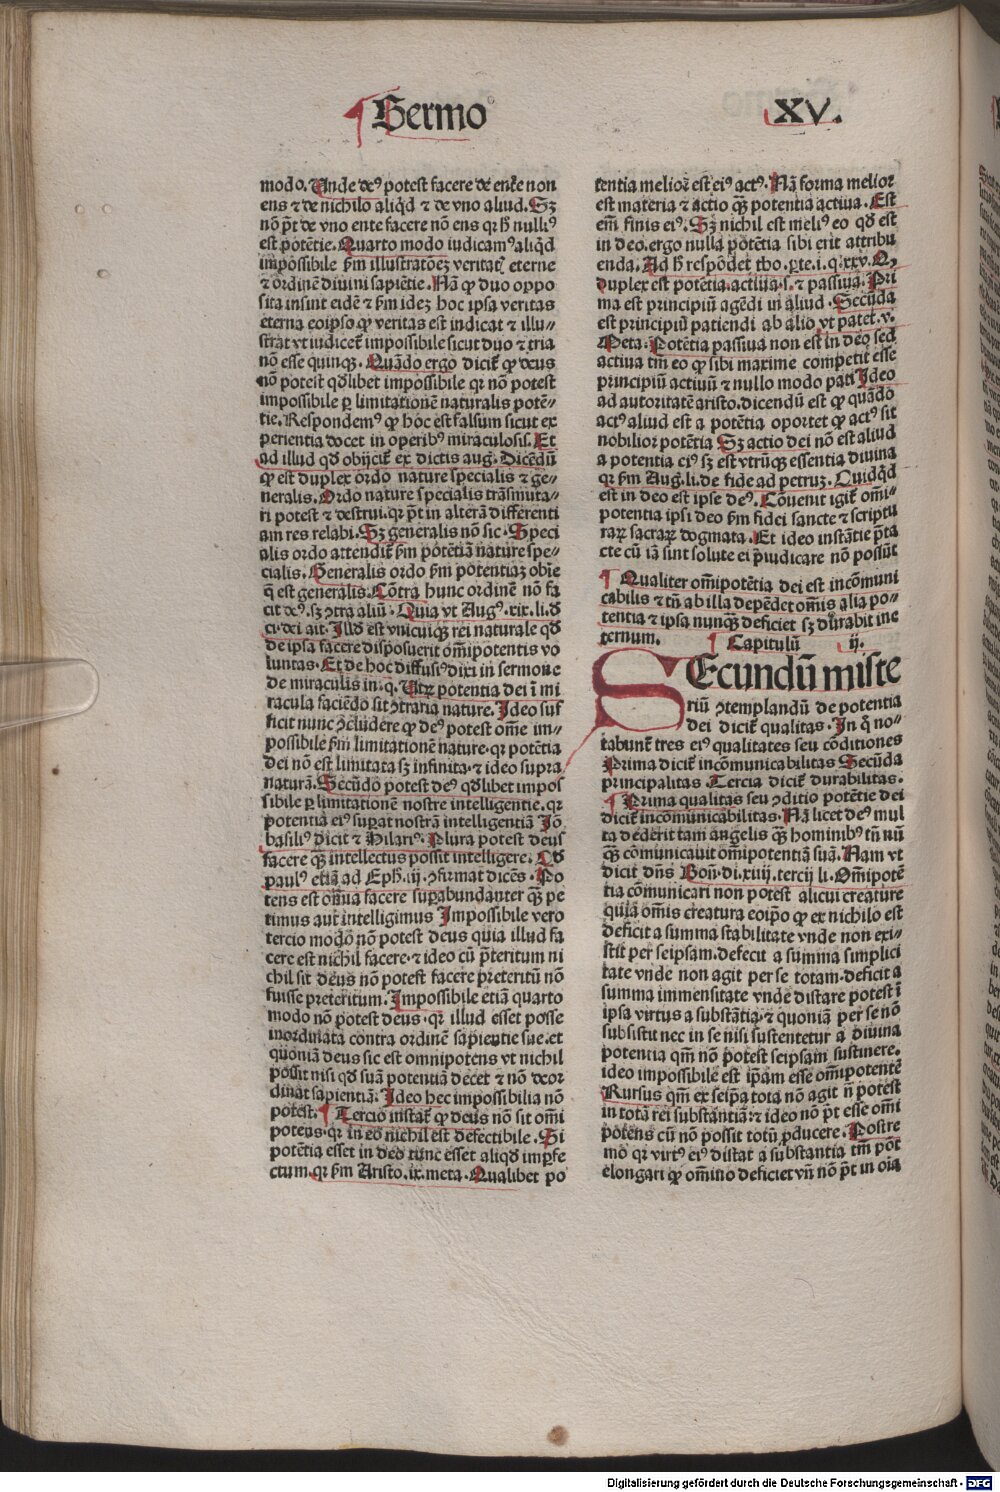 Sermo XV.
modo. Unde deꝰ potest facere de ente non
ens ⁊ de nichilo aliq̇d ⁊ de vno aliud. Sꝫ
nō p̄t de vno ente facere nō ens qr h̄ nulliꝰ
est potētie. Quarto modo iudicamꝰ aliq̇d
impossibile ẜm illustratōeꝫ veritatꝭ eterne
⁊ ordinē diuini sapiētie. Nā ꝙ duo oppo
sita insint eidē ⁊ ẜm ideꝫ hoc ipsa veritas
eterna eoipso ꝙ veritas est indicat ⁊ illu⸗
strat vt iudicet̄ impossibile sicut duo ⁊ tria
nō esse quinqꝫ. Quādo ergo dicit̄ ꝙ deus
nō potest qḋlibet impossibile qr nō potest
impossibile ꝑ limitationē naturalis potē⸗
tie. Respondemꝰ ꝙ hoc est falsum sicut ex
perientia docet in operibꝰ miraculosis. Et
ad illud qḋ obijcit̄ ex dictis aug. Dicēdū
ꝙ est duplex ordo nature specialis ⁊ ge⸗
neralis. Ordo nature specialis trāsmuta⸗
ri potest ⁊ destrui. qr p̄t in alterā differenti
am res relabi. Sꝫ generalis nō sic. Speci
alis ordo attendit̄ ẜm potētiā nature spe⸗
cialis. Generalis ordo ẜm potentiaꝫ obie
q̄ est generalis. Cōtra hunc ordinē nō fa
cit deꝰ. sꝫ ꝯtra aliū. Quia vt Augꝰ. xix. li. ḋ
ci. dei ait. Illḋ est vnicuiqꝫ rei naturale qḋ
de ipsa facere disposuerit om̄ipotentis vo
luntas. Et de hoc diffusiꝰ dixi in sermone
de miraculis in. q. Utrꝝ potentia dei ī mi
racula faciēdo sit ꝯtraria nature. Ideo suf
ficit nunc ꝯcludere ꝙ deꝰ potest om̄e im⸗
possibile ẜm limitationē nature. qr potētia
dei nō est limitata sꝫ infinita. ⁊ ideo supra
naturā. Secūdo potest deꝰ qḋlibet impos
sibile ꝑ limitationē nostre intelligentie. qr
potentia eiꝰ suꝑat nostrā intelligentiā Iō
basiliꝰ dicit ⁊ Hilariꝰ. Plura potest deus
facere qꝫ̄ intellectus possit intelligere. Qḋ
paulꝰ etiā ad Eph̄. iij. ꝯfirmat dicēs. Po
tens est om̄ia facere suꝑabundanter qꝫ̄ pe
timus aut intelligimus Impossibile vero
tercio modo nō potest deus quia illud fa
cere est nichil facere. ⁊ ideo cū p̄teritum ni
chil sit deus nō potest facere preteritū nō
fuisse preteritum. Impossibile etiā quarto
modo nō potest deus. qr illud esset posse
inordinata contra ordinē sapientie sue. et
quoniā deus sic est omnipotens vt nichil
possit nisi qḋ suā potentiā decet ⁊ nō deor
dinat sapientiā. Ideo hec impossibilia nō
potest. ¶ Tercio instat̄ ꝙ deus nō sit om̄i
potens. qr in eo nichil est defectibile. Si
potētia esset in deo tunc esset aliqḋ imꝑfe
ctum. qr ẜm Aristo. ix. meta. Qualibet po
tentia melior̄ est eiꝰ actꝰ. Nā forma melior
est materia ⁊ actio qꝫ̄ potentia actiua. Est
em̄ finis eiꝰ. Sꝫ nichil est meliꝰ eo qḋ est
in deo. ergo nulla potētia sibi erit attribu
enda. Ad h̄ respōdet tho. ꝑte. i. q. xxv. Q.
duplex est potētia. actiua. s. ⁊ passiua. Pri
ma est principiū agēdi in aliud. Secūda
est principiū patiendi ab alio vt patet. v.
Meta. Potētia passiua non est in deo sed
actiua tm̄ eo ꝙ sibi maxime competit esse
principiū actiuū ⁊ nullo modo pati Ideo
ad autoritatē aristo. dicendū est ꝙ quādo
actꝰ aliud est a potētia oportet ꝙ actꝰ sit
nobilior potētia Sꝫ actio dei nō est aliud
a potentia eiꝰ sꝫ est vtrūqꝫ essentia diuina
qr ẜm Aug. li. de fide ad petruꝫ. Quidq̇d
est in deo est ipse deꝰ. Cōuenit igit̄ om̄i⸗
potentia ipsi deo ẜm fidei sancte ⁊ scriptu
rarꝝ sacrarꝝ dogmata. Et ideo instātie p̄ta
cte cū iā sint solute ei p̄iudicare nō possūt
¶ Qualiter om̄ipotētia dei est incōmuni
cabilis ⁊ tn̄ ab illa depēdet om̄is alia po⸗
tentia ⁊ ipsa nunqꝫ̄ deficiet sꝫ durabit ine
ternum. ¶ Capitulū ij.
SEcundū miste
riū ꝯtemplandū de potentia
dei dicit̄ qualitas. In q̄ no⸗
tabunt̄ tres eiꝰ qualitates seu cōditiones
Prima dicit̄ incōmunicabilitas Secūda
principalitas. Tercia dicit̄ durabilitas.
¶ Prima qualitas seu ꝯditio potētie dei
dicit̄ incōmunicabilitas. Nā licet deꝰ mul
ta dederit tam angelis qꝫ̄ hominibꝰ tn̄ nū
qꝫ̄ cōmunicauit om̄ipotentiā suā. Nam vt
dicit dn̄s Bon̄. di. xliij. tercij li. Om̄ipotē
tia cōmunicari non potest alicui creature
quia om̄is creatura eoip̄o ꝙ ex nichilo est
deficit a summa stabilitate vnde non exi⸗
stit per seipsam. defecit a summa simplici
tate vnde non agit per se totam. deficit a
summa immensitate vnde distare potest ī
ipsa virtus a substātia. ⁊ quoniā per se nō
subsistit nec in se nisi sustentetur a diuina
potentia qm̄ nō potest seipsam sustinere.
ideo impossibile est ip̄am esse om̄ipotentē
Rursus qm̄ ex seip̄a tota nō agit n̄ potest
in totā rei substantiā: ⁊ ideo nō p̄t esse om̄i
potens cū nō possit totū ꝓducere. Postre
mo qr virtꝰ eiꝰ distat a substantia tm̄ pōt
elongari ꝙ om̄ino deficiet vn̄ nō p̄t in oīa
Digitalisierung gefördert durch die Deutsche Forschungsgemeinschaft - DFG